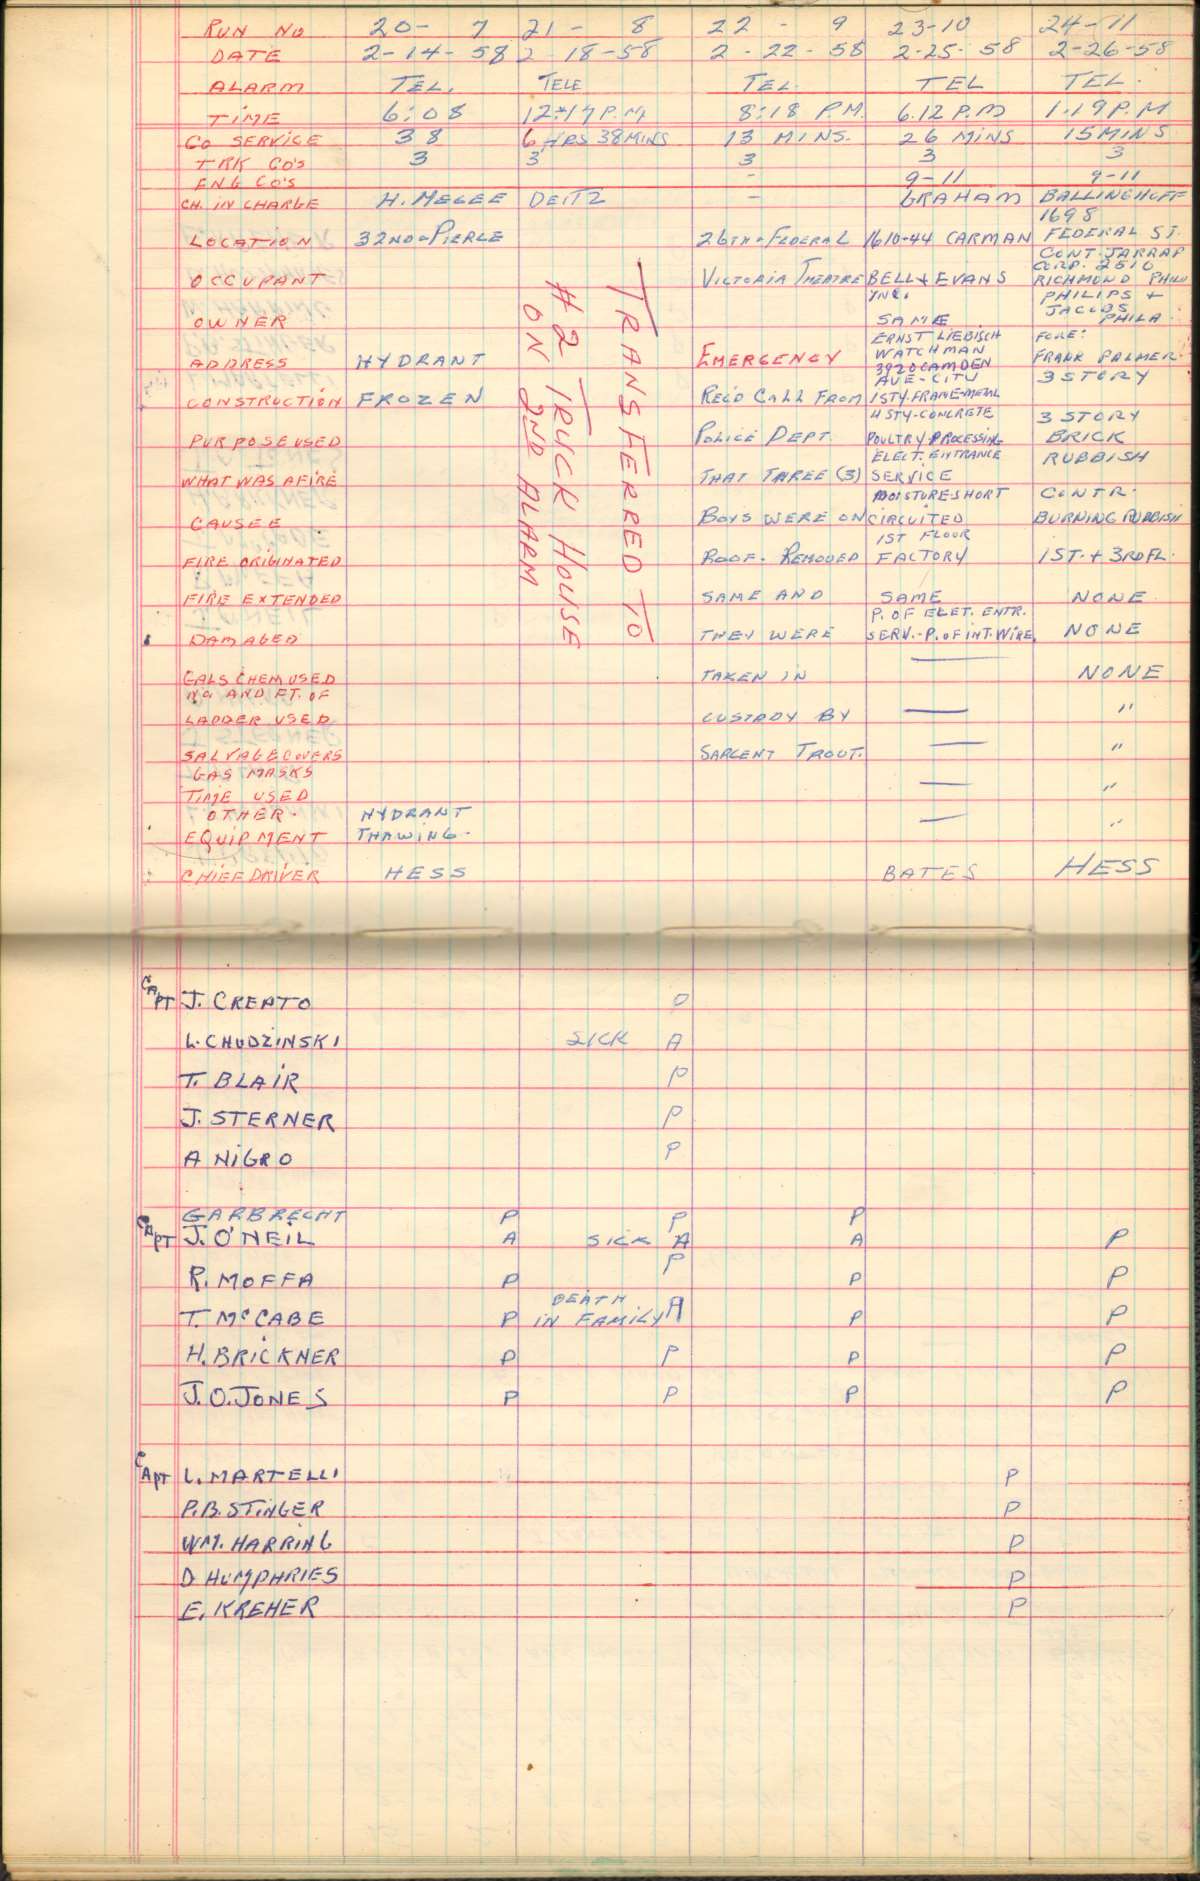 RUN NO 20- 7 21- 8 22 - 9 23-10 24-11
DATE 2-14-58 2-18-58 2-22-58 2-25-58 2-26-58
ALARM TEL. TELE TEL. TEL TEL.
TIME 6:08 12:17 P.M 8:18 P.M. 6.12 P.M 1:19 P.M
CO SERVICE 38 6 HRS 38 MINS 13 MINS. 26 MINS 15 MINS
TRK CO'S 3 3 3 3 3
ENG CO'S - 9-11 9-11
CH. IN CHARGE H. MEGEE DEITZ - GRAHAM BALLINGHOFF
1698
LOCATION 32ND-PIERCE 26TH-FEDERAL 1610-44 CARMAN FEDERAL ST.
CONT. JARRAP
CORP. 2510
OCCUPANT VICTORIA THEATRE BELL & EVANS RICHMOND PHILA
YNC. PHILIPS +
JACOBS
OWNER SAME PHILA.
ERNST LIEBISCH FORE:
WATCHMAN
ADDRESS HYDRANT EMERGENCY 3920 CAMDEN FRANK PALMER
AVE-CITY 3 STORY
CONSTRUCTION FROZEN REC'D CALL FROM 1STY.FRAME-METAL
4 STY-CONCRETE 3 STORY
PURPOSE USED POLICE DEPT. POULTRY-PROCESSING BRICK
ELECT. ENTRANCE RUBBISH
WHAT WAS AFIRE THAT THREE (3) SERVICE
MOISTURE-SHORT CONTR.
CAUSEE BOYS WERE ON CIRCUITED BURNING RUBBISH
1ST FLOOR
FIRE ORIGINATED ROOF. REMOVED FACTORY 1ST. + 3RD FL.
FIRE EXTENDED SAME AND SAME NONE
P. OF ELET. ENTR.
DAMAGED THEY WERE SERV.-P. OF INT. WIRE. NONE
GALS CHEM USED TAKEN IN — NONE
NO AND FT. OF
LADDER USED CUSTODY BY — "
SALVAGE COVERS SARGENT TROUT. — "
GAS MASKS
TIME USED — "
OTHER. HYDRANT
EQUIPMENT THAWING. — "
CHIEF DRIVER HESS BATES HESS
TRANSFERED TO
#2 TRUCK HOUSE
ON 2ND ALARM
CAPT J. CREATO O
L. CHUDZINSKI SICK A
T. BLAIR P
J. STERNER P
A NIGRO P
GARBRECHT P P P
CAPT J. O'NEIL A SICK A A P
R. MOFFA P P P P
DEATH
T. McCABE P IN FAMILY A P P
H. BRICKNER P P P P
J. O. JONES P P P P
CAPT L. MARTELLI P
P.B. STINGER P
WM. HARRING P
D HUMPHRIES P
E. KREHER P